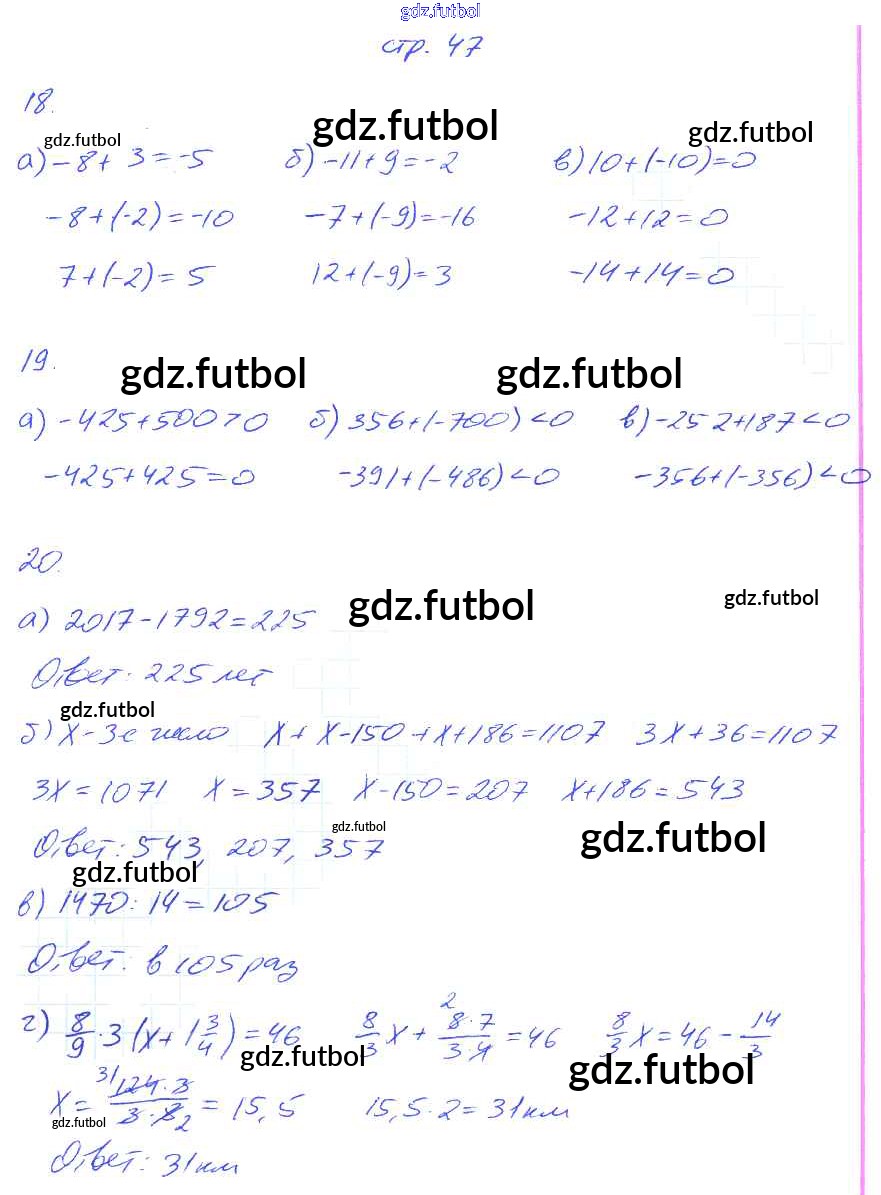 gdz.futbol
стр. 47
18.
gdz.futbol gdz.futbol gdz.futbol
а) -8+ 3 = -5 б) -11+9=-2 в) 10+(-10)=0
-8+(-2)=-10 -7+(-9)=-16 -12+12=0
7+(-2)= 5 12+(-9)=3 -14+14=0
19.
gdz.futbol gdz.futbol
а) -425+500>0 б) 356+(-700)<0 в) -252+187<0
-425+425=0 -391+(-486)<0 -356+(-356)<0
20.
gdz.futbol gdz.futbol
а) 2017-1792=225
Ответ: 225 лет
gdz.futbol
б) x-3е число x+x-150+x+186=1107 3x+36=1107
3x=1071 x=357 x-150=207 x+186=543
gdz.futbol gdz.futbol
Ответ: 543, 207, 357
gdz.futbol
в) 1470:14=105
Ответ: в 105 раз
г) 8/9·3(x+1 3/4)=46 8/3x+ 2 8·7/3·4=46 8/3x=46-14/3
gdz.futbol gdz.futbol
x= 31 124·3/3·8 2 = 15,5 15,5·2=31км
gdz.futbol
Ответ: 31км